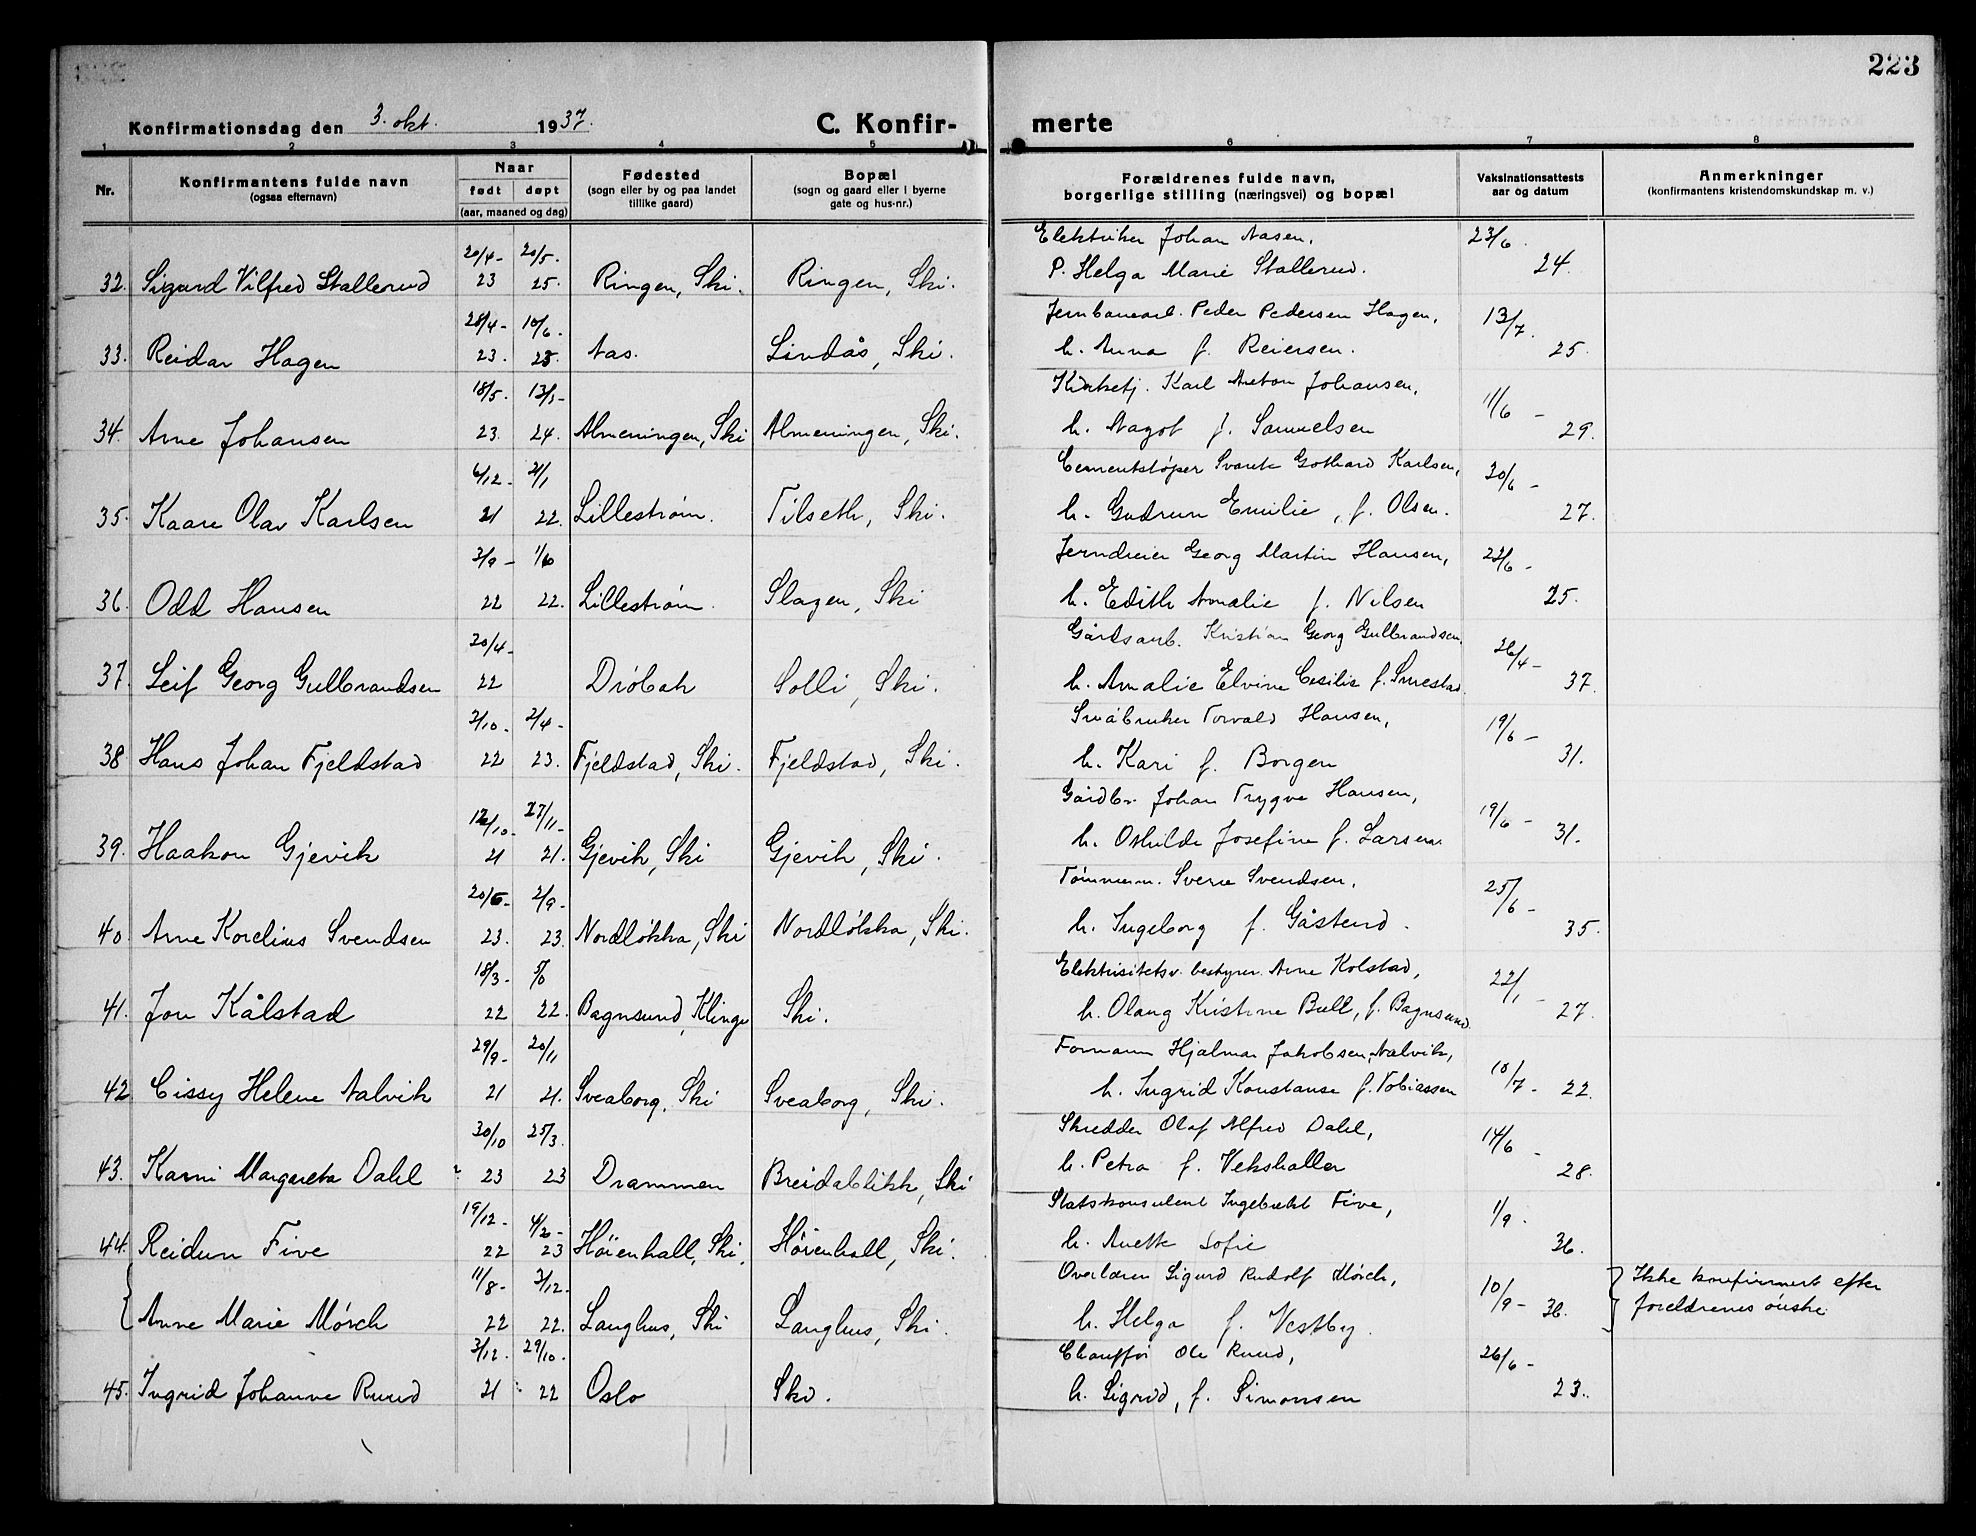 223
Konfirmationsdag den 3. okt. 1937.
C. Konfir-merte
1 2 3 4 5 6 7 8
Nr.
Konfirmantens fulde navn
(ogsaa efternavn)
Naar
født døpt
(aar, maaned og dag)
Fødested
(sogn eller by og paa landet
tillike gaard)
Bopæl
(sogn og gaard eller i byerne
gate og hus-nr.)
Forældrenes fulde navn,
borgerlige stilling (næringsvei) og bopæl
Vaksinationsattests
aar og datum
Anmerkninger
(konfirmantens kristendomskundskap m. v.)
20/4- 20/5- Elektriker Johan Aasen, 23/6.
32. Sigurd Vilfred Stallerud 23 25. Ringen, Ski. Ringen, Ski. P. Helga Marie Stallerud. 24.
28/4- 10/6- Jernbanearb. Peder Pedersen Hagen, 13/7.
33. Reidar Hagen 23. 23. Aas. Lindås, Ski. h. Anna f. Reiersen. 25.
18/5. 13/1- Karl Anton Johansen, 11/6-
34. Arne Johansen 23. 24. Almeningen, Ski Almeningen, Ski. h. Aagot f. Samuelsen 29.
6/12- 21/1 Cementstøper Gothard Karlsen, 30/6-
35. Kaare Olav Karlsen 21 22. Lillestrøm. Tilseth, Ski. h. Gudrun Emilie, f. Olsen. 27.
3/9- Jerndreier Georg Martin Hansen, 22/6-
36. Odd Hansen 22 22. Lillestrøm. Slagen, Ski h. Edith Amalie f. Nilsen 25.
20/4- Gårdsarb. Kristian Georg Gulbrandsen, 26/4-
37. Leif Georg Gulbrandsen 22 Drøbak Solli, Ski. h. Amalie Elvine Cesilie f. Smestad 37.
2/10. 2/4- Småbruker Torvald Hansen, 19/6-
38 Hans Johan Fjeldstad 22 23. Fjeldstad, Ski. Fjeldstad, Ski. h. Kari f. Borgen 31.
12/10- 27/11- Gårdbr. Johan Trygve Hansen, 19/6-
39. Haakon Gjevik 21 21. Gjevik, Ski Gjevik, Ski. h. Oshilde Josefine f. Larsen. 31.
20/6- 2/9- Tømmerm. Sverre Svendsen, 25/6-
40. Arne Kornelius Svendsen 23. 23. Nordløkka, Ski Nordløkka, Ski. h. Ingeborg f. Gåsterud. 35.
18/3- Elektrisitetsv. bestyrer Arne Kolstad, 22/1-
41. Jon Kålstad 22 22. Bagnsund, Klinga Ski. h. Olaug Kristine Bull, f. Bagnsund. 27.
29/9- 20/11 Formann Hjalmar Jakobsen Aalvik, 10/7-
42 Cissy Helene Aalvik 21 21. Sveaborg, Ski Sveaborg, Ski. h. Ingrid Konstanse f. Tobiassen 22.
30/10 25/3. Skredder Olaf Alfred Dahl, 14/6-
43. Karni Margareta Dahl 23 23 Drammen Breidablikk, Ski h. Petra f. Vekshallen 28.
19/12- 4/2- Statskonsulent Ingebrekt Five, 1/9.
44. Reidun Five 22 23 Høienhall, Ski. Høienhall, Ski. h. Anette Sofie 36.
11/8- 3/12- Overlærer Sigurd Rudolf Mørch, 10/9- Ikke konfirmert efter
Anne Marie Mørch 22 22. Langhus, Ski Langhus, Ski. h. Helga f. Vestby. 36. foreldrenes ønske.
3/12. 29/10. Chauffør Ole Ruud, 26/6-
45. Ingrid Johanne Ruud 21 22 Oslo Ski. h. Sigrid, f. Simonsen 23.